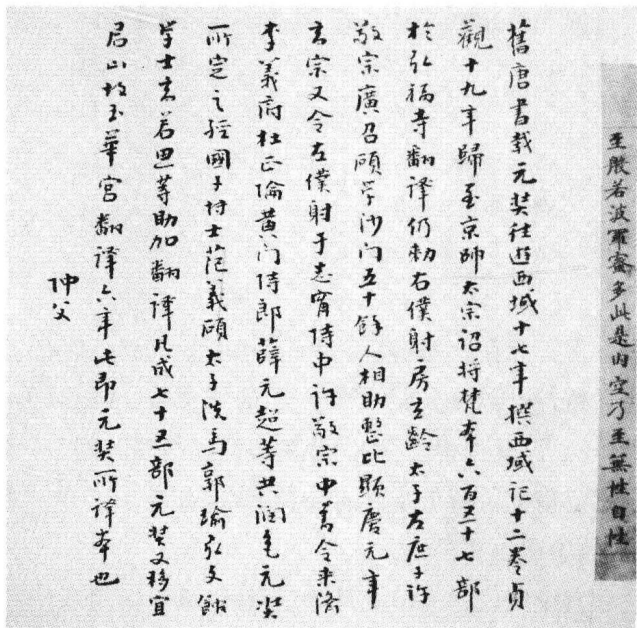 至般若波羅蜜多此是内空乃至無性自性
舊唐書載元奘往遊西域十七年撰西域記十二卷貞
觀十九年歸至京師太宗詔將梵本六百五十七部
於弘福寺翻譯仍勑右僕射房玄齡太子左庶子許
敬宗廣召碩學沙門五十餘人相助整比顯慶元年
玄宗又令左僕射于志甯侍中許敬宗中書令来濟
李義府杜正倫黄门侍郎薛元超等共潤色元奘
所定之經國子博士范義碩太子洗馬郭瑜弘文館
學士高若思等助加翻譯凡成七十五部元奘又移宜
君山故玉華宮翻譯六年此即元奘所譯本也
仲父